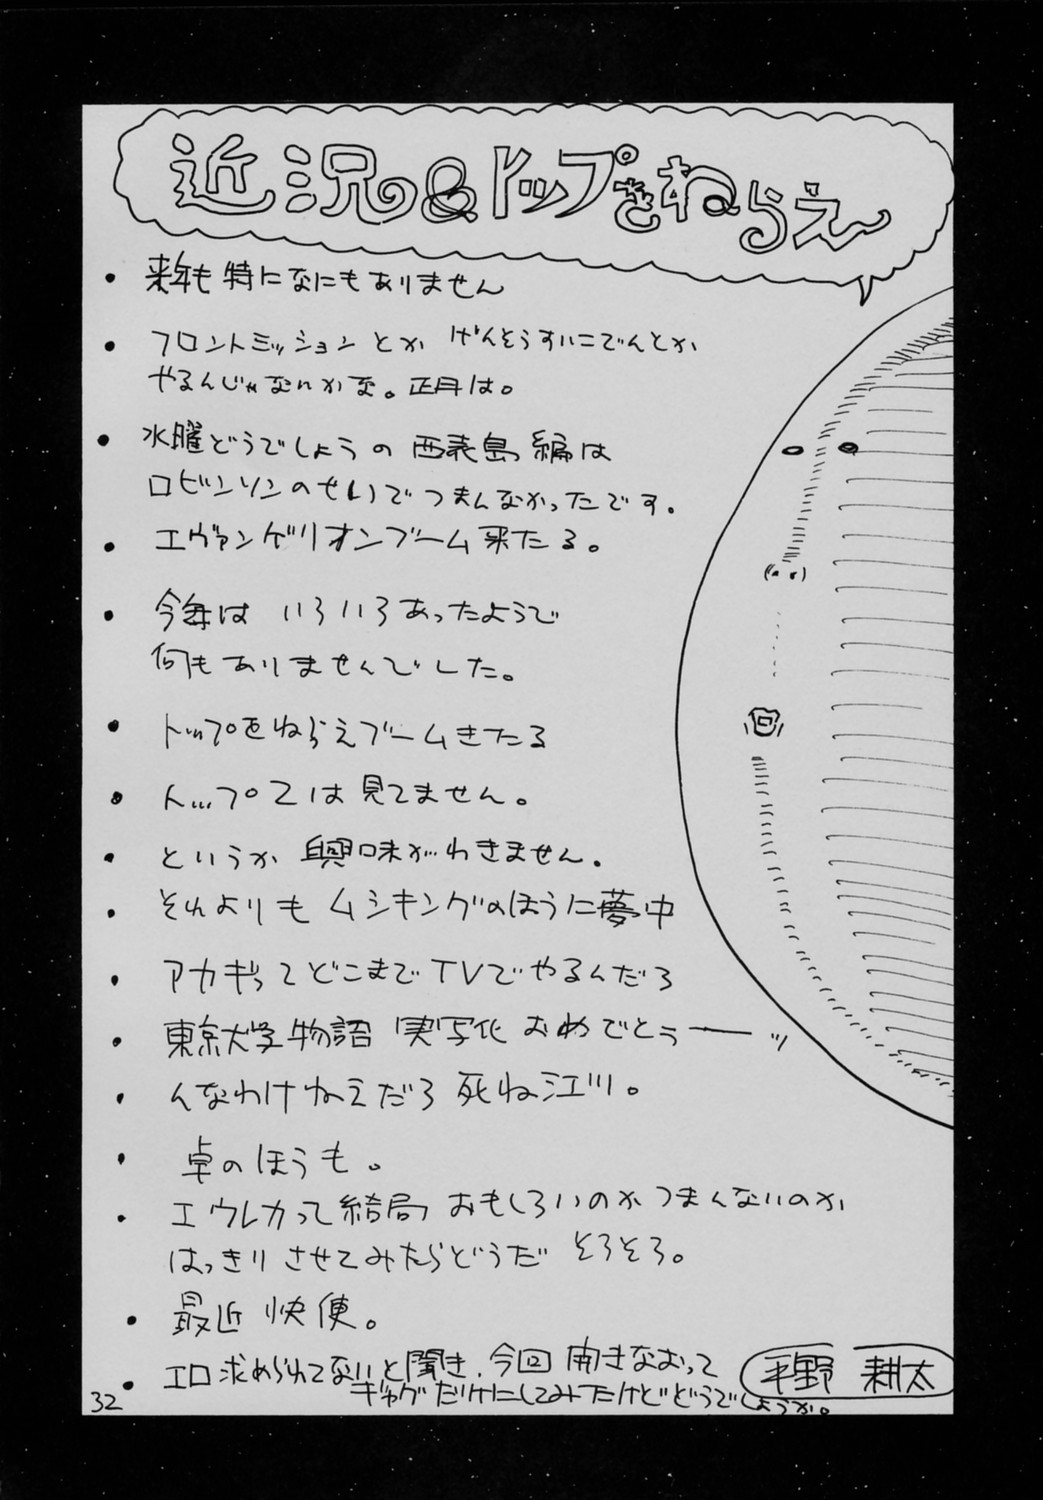 近況&トップをねらえ〜
・来年も特になにもありません
・フロントミッションとか げんそうすいこでんとか
やるんじゃないかな。正月は。
・水曜どうでしょうの西表島編は
ロビンソンのせいでつまんなかったです。
・エヴァンゲリオンブーム来たる。
・今年は いろいろあったようで
何もありませんでした。
・トップをねらえブームきたる
・ト…プ2は見てません。
・というか 興味がわきません。
・それよりも ムシキングのほうに夢中
・アカギってどこまでTVでやるんだろ
・東京大学物語 実写化 おめでとぅーーッ
・んなわけねえだろ 死ね江川。
・卓のほうも。
・エウレカって結局 おもしろいのかつまんないのか
はっきりさせてみたらどうだ そろそろ。
・最近 快便。
・エロ求められてないと聞き、今回 開きなおって
ギャグだけにしてみたけどどうでしょうか。
平野 耕太
32